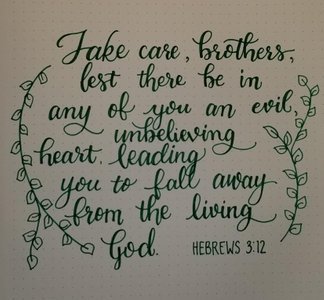 Take care, brothers,
lest there be in
any of you an evil,
unbelieving
heart, leading
you to fall away
from the living
God. HEBREWS 3:12